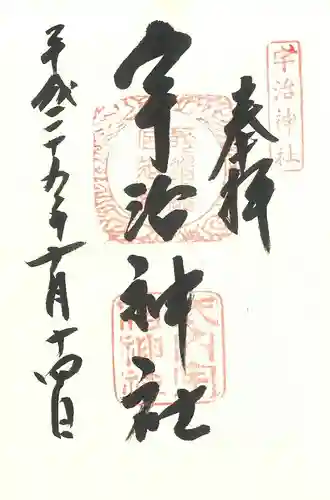 宇治神社
奉拝
宇治神社
平成二十九年十一月十四日